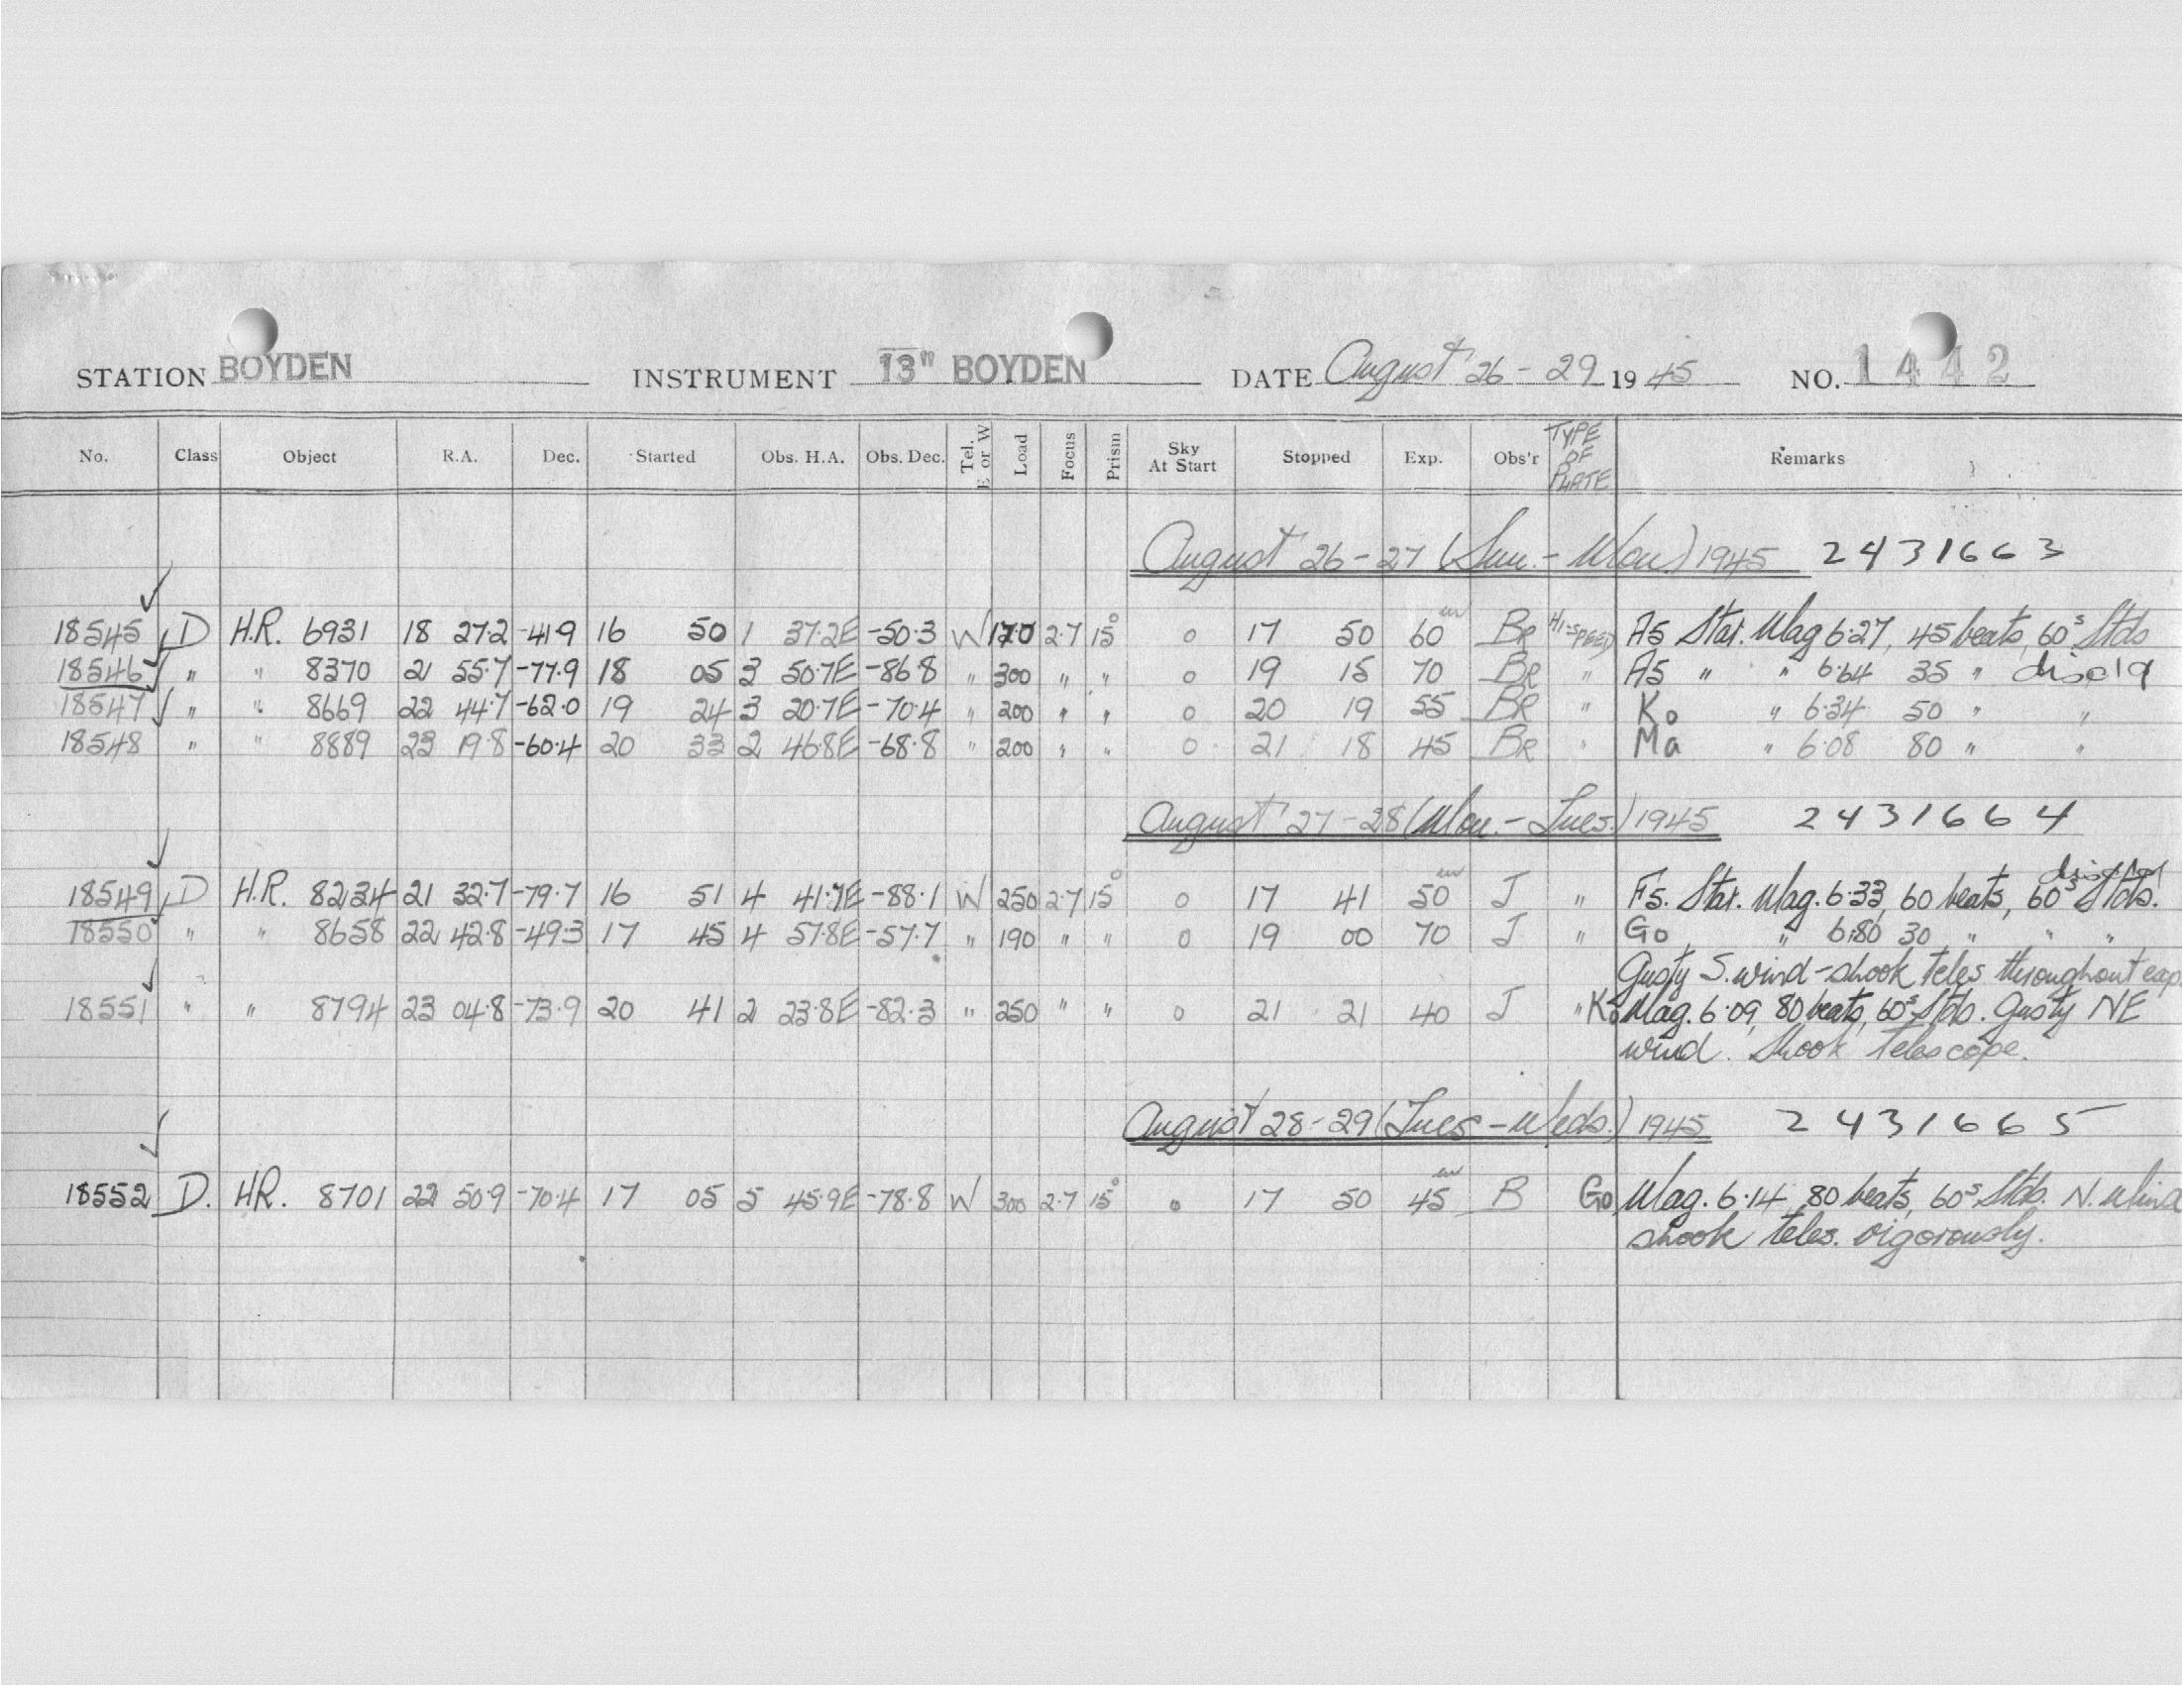 STATION BOYDEN INSTRUMENT 13" BOYDEN DATE August 26 - 29 1945 NO. 1442
No. Class Object R.A. Dec. Started Obs. H.A. Obs. Dec. Tel. E or W Load Focus Prism Sky At Start Stopped Exp. Obs'r TYPE OF PLATE Remarks
August 26-27 (Sun.-Mon.) 1945 2431663
18545 D H.R. 6931 18 27.2 -41.9 16 50 1 37.2E -50.3 W 170 2.7 15° 0 17 50 60 m BR HI-SPEED A5 Star. Mag 6.27, 45 beats, 60s Stds
18546 " " 8370 21 55.7 -77.9 18 05 3 50.7E -86.8 " 300 " " 0 19 15 70 BR " A5 " " 6.64 35 "
18547 " " 8669 22 44.7 -62.0 19 24 3 20.7E -70.4 " 200 " " 0 20 19 55 BR " Ko " 6.34 50 " "
18548 " " 8889 23 19.8 -60.4 20 33 2 46.8E -68.8 " 200 " " 0 21 18 45 BR " Ma " 6.08 80 " "
August 27-28 (Mon.-Tues.) 1945 2431664
18549 D H.R. 8234 21 32.7 -79.7 16 51 4 41.7E -88.1 W 250 2.7 15° 0 17 41 50 m J " F5. Star. Mag. 6.33, 60 beats, 60s Stds.
18550 " " 8658 22 42.8 -49.3 17 45 4 57.8E -57.7 " 190 " " 0 19 00 70 J " Go " 6.80 30 " " "
Gusty S. wind - shook teles throughout exp.
18551 " " 8794 23 04.8 -73.9 20 41 2 23.8E -82.3 " 250 " " 0 21 21 40 J " K5 Mag. 6.09, 80 beats, 60s Stds. Gusty NE
wind. Shook telescope.
August 28-29 (Tues-Weds.) 1945 2431665
18552 D. HR. 8701 22 50.9 -70.4 17 05 5 45.9E -78.8 W 300 2.7 15° 0 17 50 45 m B Go Mag. 6.14, 80 beats, 60s Stds. N. Wind
shook teles. vigorously.